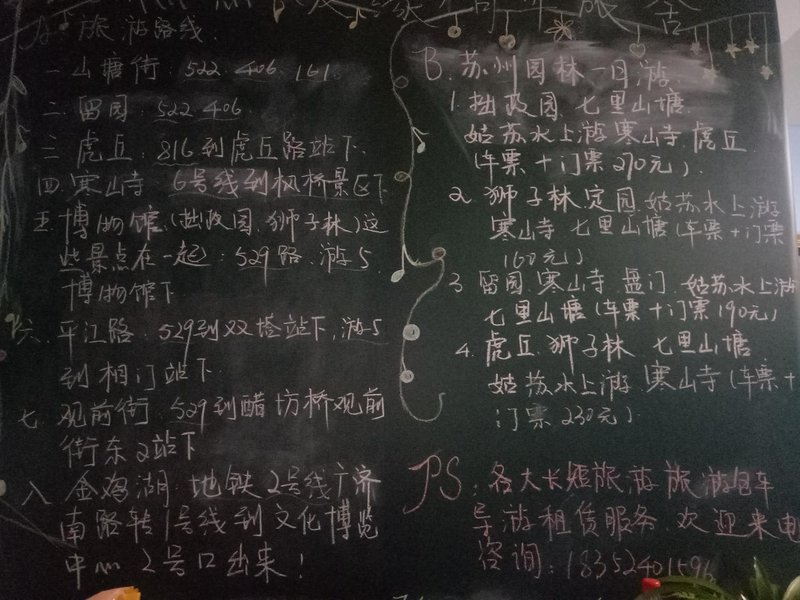 旅游路线
一 山塘街:522. 406. 161
二. 留园:522. 406.
三 虎丘:816到虎丘路站下
四 寒山寺 6号线到枫桥景区下
五. 博物馆(拙政园.狮子林)这
些景点在一起:529路.游5
博物馆下
六. 平江路:529到双塔站下,游5
到相门站下
七 观前街 529到醋坊桥观前
街东2站下
八 金鸡湖:地铁2号线广济
南路转1号线到文化博览
中心2号口出来!
B. 苏州园林一日游
1. 拙政园.七里山塘.
姑苏水上游.寒山寺.虎丘
(车票+门票270元).
2. 狮子林.定园.姑苏水上游
寒山寺 七里山塘(车票+门票
160元)
3 留园.寒山寺.盘门.姑苏水上游
七里山塘(车票+门票190元)
4. 虎丘.狮子林 七里山塘
姑苏水上游.寒山寺(车票+
门票230元)
PS:各大长短旅游旅游包车
导游租赁服务.欢迎来电
咨询:18352401596